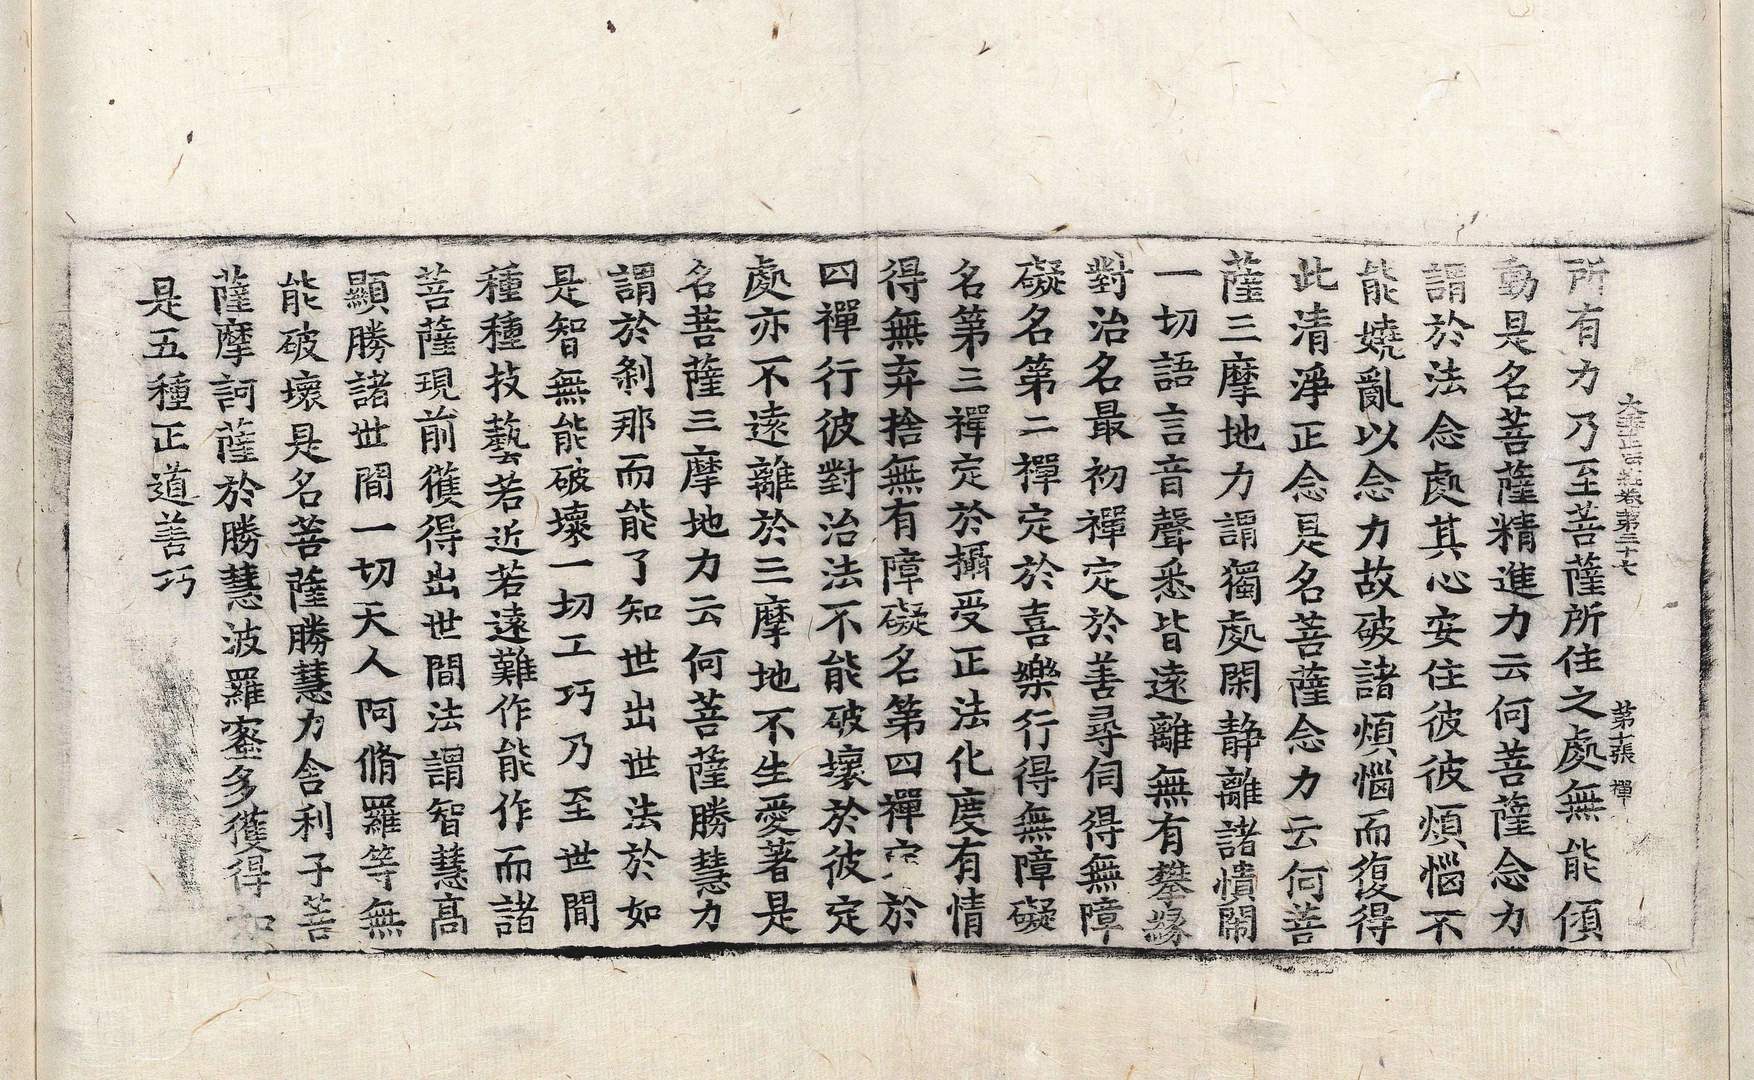 大乘正法經卷第三十七　第十張　禪
所有力乃至菩薩所住之處無能傾
動是名菩薩精進力云何菩薩念力
謂於法念處其心安住彼彼煩惱不
能嬈亂以念力故破諸煩惱而復得
此清淨正念是名菩薩念力云何菩
薩三摩地力謂獨處閑静離諸憒閙
一切語言音聲悉皆遠離無有攀緣
對治名最初禪定於善尋伺得無障
礙名第二禪定於喜樂行得無障礙
名第三禪定於攝受正法化度有情
得無弃捨無有障礙名第四禪定於
四禪行彼對治法不能破壞於彼定
處亦不遠離於三摩地不生愛著是
名菩薩三摩地力云何菩薩勝慧力
謂於剎那而能了知世出世法於如
是智無能破壞一切工巧乃至世間
種種技藝若近若遠難作能作而諸
菩薩現前獲得出世間法謂智慧高
顯勝諸世間一切天人阿脩羅等無
能破壞是名菩薩勝慧力舎利子菩
薩摩訶薩於勝慧波羅蜜多獲得如
是五種正道善巧